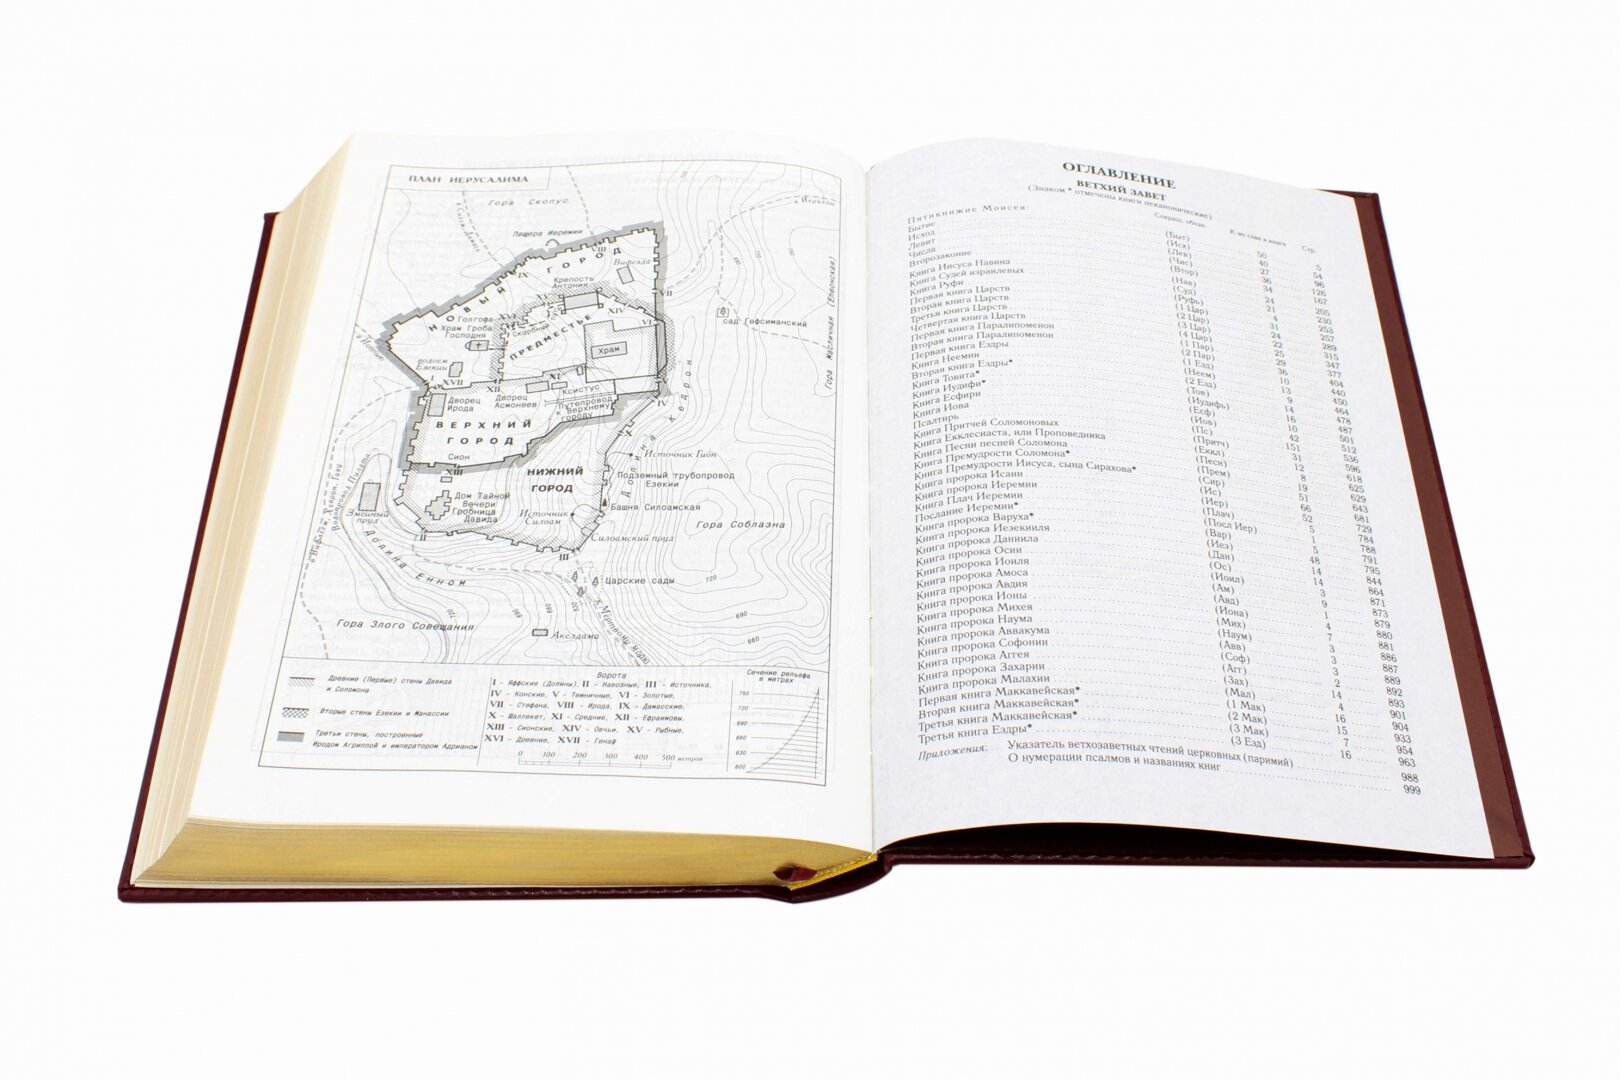 ПЛАН ИЕРУСАЛИМА
Гора Скопус
в Иерихон
Пещера Иеремии
НОВЫЙ ГОРОД
Вифезда
Крепость
Антония
Голгофа
Храм Гроба
Господня
Скорбный
ПРЕДМЕСТЬЕ
Храм
сад Гефсиманский
Гора Масличная (Елеонская)
водоем
Езекии
Дворец
Ирода
Дворец
Асмонеев
Ксистус
Путепровод
к Верхнему
городу
ВЕРХНИЙ
ГОРОД
Сион
Долина Кедрон
Источник Гион
НИЖНИЙ
ГОРОД
Подземный трубопровод
Езекии
Дом Тайной
Вечери
Гробница
Давида
Источник
Силоам
Башня Силоамская
Гора Соблазна
Змеиный
пруд
Водопровод Пилата
Силоамский пруд
Долина Енном
Царские сады
к Мертвому морю
Гора Злого Совещания
Акелдама
Древние (Первые) стены Давида
и Соломона
Вторые стены Езекии и Манассии
Третьи стены, построенные
Иродом Агриппой и императором Адрианом
Ворота
I - Яффские (Долины), II - Навозные, III - Источника,
IV - Конские, V - Темничные, VI - Золотые,
VII - Стефана, VIII - Ирода, IX - Дамасские,
X - Шаллекет, XI - Средние, XII - Ефраимовы,
XIII - Сионские, XIV - Овчьи, XV - Рыбные,
XVI - Древние, XVII - Генаф
0 100 200 300 400 500 метров
Сечение рельефа
в метрах
750
720
690
660
630
600
ОГЛАВЛЕНИЕ
ВЕТХИЙ ЗАВЕТ
(Знаком * отмечены книги неканонические)
Сокращ. обозн. К-во глав в книге Стр.
Пятикнижие Моисея:
Бытие (Быт) 50 5
Исход (Исх) 40 54
Левит (Лев) 27 96
Числа (Чис) 36 126
Второзаконие (Втор) 34 167
Книга Иисуса Навина (Нав) 24 205
Книга Судей израилевых (Суд) 21 230
Книга Руфи (Руфь) 4 253
Первая книга Царств (1 Цар) 31 257
Вторая книга Царств (2 Цар) 24 289
Третья книга Царств (3 Цар) 22 315
Четвертая книга Царств (4 Цар) 25 347
Первая книга Паралипоменон (1 Пар) 29 377
Вторая книга Паралипоменон (2 Пар) 36 404
Первая книга Ездры (1 Езд) 10 440
Книга Неемии (Неем) 13 450
Вторая книга Ездры* (2 Езд) 9 464
Книга Товита* (Тов) 14 478
Книга Иудифи* (Иудифь) 16 487
Книга Есфири (Есф) 10 501
Книга Иова (Иов) 42 512
Псалтирь (Пс) 151 536
Книга Притчей Соломоновых (Притч) 31 596
Книга Екклесиаста, или Проповедника (Еккл) 12 618
Книга Песни песней Соломона (Песн) 8 625
Книга Премудрости Соломона* (Прем) 19 629
Книга Премудрости Иисуса, сына Сирахова* (Сир) 51 643
Книга пророка Исаии (Ис) 66 681
Книга пророка Иеремии (Иер) 52 729
Книга Плач Иеремии (Плач) 5 784
Послание Иеремии* (Посл Иер) 1 788
Книга пророка Варуха* (Вар) 5 791
Книга пророка Иезекииля (Иез) 48 795
Книга пророка Даниила (Дан) 14 844
Книга пророка Осии (Ос) 14 864
Книга пророка Иоиля (Иоил) 3 871
Книга пророка Амоса (Ам) 9 873
Книга пророка Авдия (Авд) 1 879
Книга пророка Ионы (Иона) 4 880
Книга пророка Михея (Мих) 7 881
Книга пророка Наума (Наум) 3 886
Книга пророка Аввакума (Авв) 3 887
Книга пророка Софонии (Соф) 3 889
Книга пророка Аггея (Агг) 2 892
Книга пророка Захарии (Зах) 14 893
Книга пророка Малахии (Мал) 4 901
Первая книга Маккавейская* (1 Мак) 16 904
Вторая книга Маккавейская* (2 Мак) 15 933
Третья книга Маккавейская* (3 Мак) 7 954
Третья книга Ездры* (3 Езд) 16 963
Приложения: Указатель ветхозаветных чтений церковных (паримий) 988
О нумерации псалмов и названиях книг 999